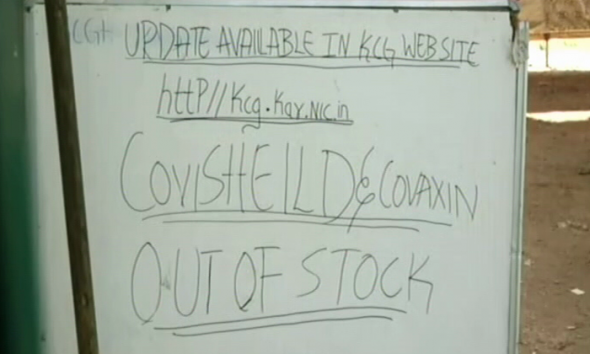 CGH UPDATE AVAILABLE IN KCG WEBSITE
httP//Kcg.Kar.Nic.in
COVISHEILD & COVAXIN
OUT OF STOCK